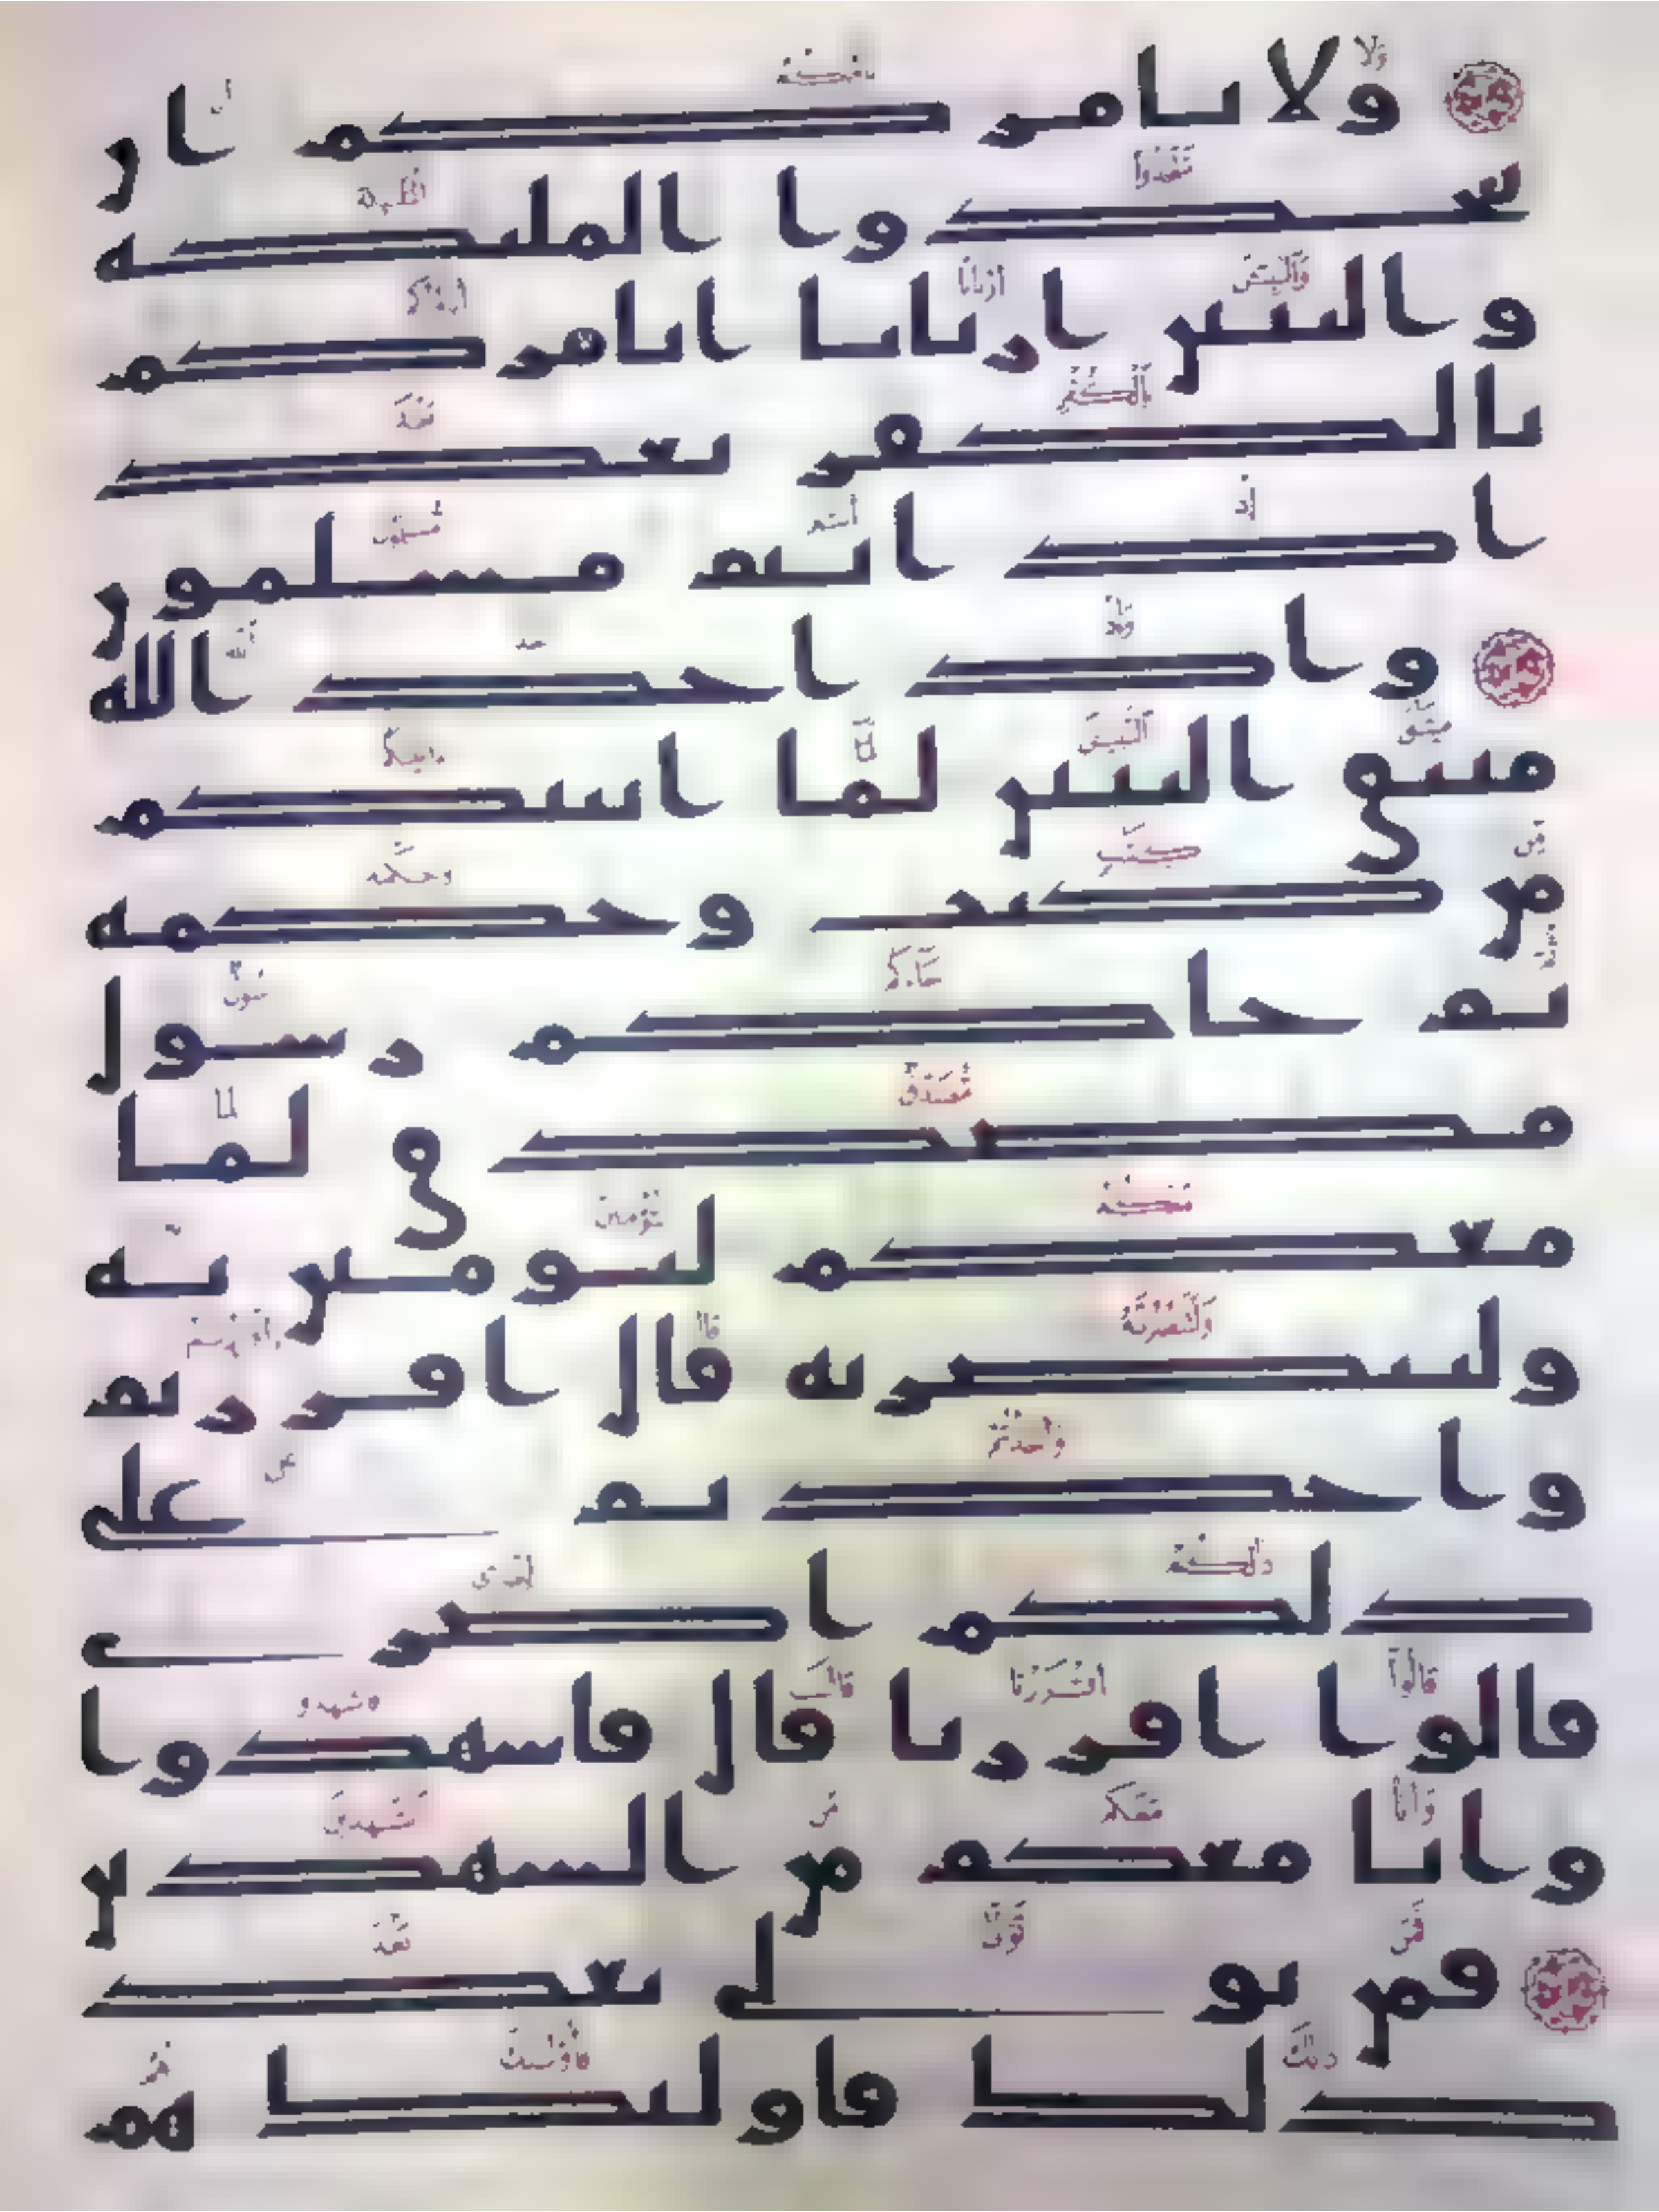 ولا يامركم ان
تتخذوا الملئكة
والنبين اربابا ايامركم
بالكفر بعد
اذ انتم مسلمون
واذ اخذ الله
ميثق النبين لما اتيتكم
من كتب وحكمة
ثم جاكم رسول
مصدق لما
معكم لتومنن به
ولتنصرنه قال اقررتم
واخذتم على
ذلكم اصري
قالوا اقررنا قال فاشهدوا
وانا معكم من الشهدين
فمن تولى بعد
ذلك فاولئك هم